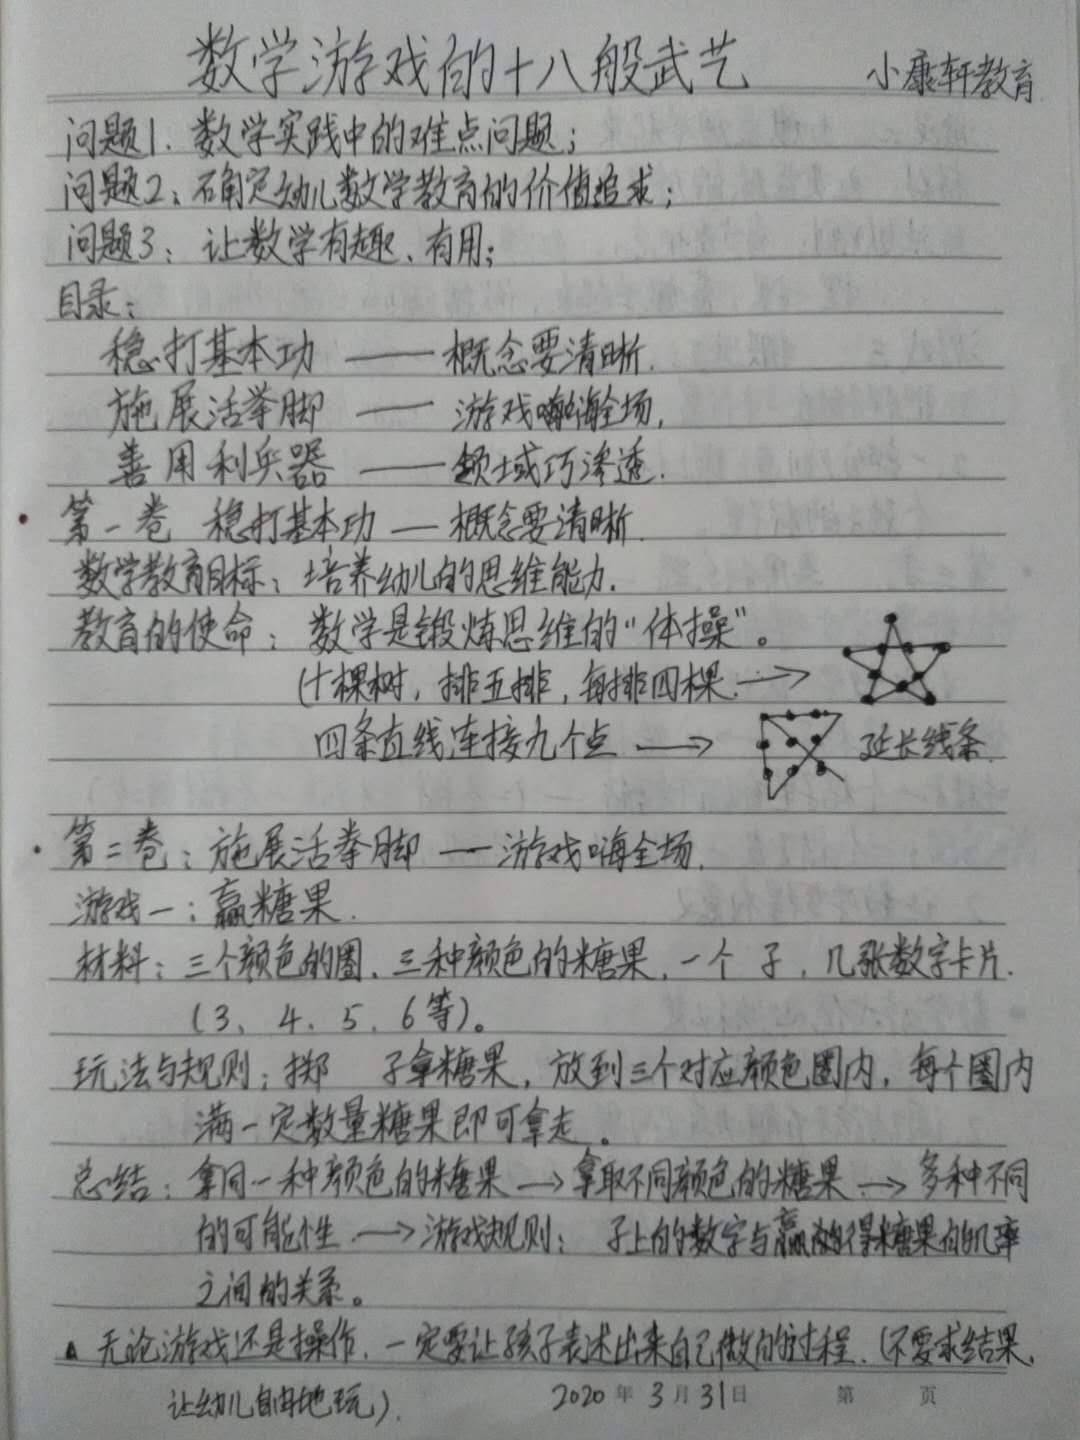 数学游戏的十八般武艺 小康轩教育
问题1、数学实践中的难点问题；
问题2：确定幼儿数学教育的价值追求；
问题3：让数学有趣、有用；
目录：
稳打基本功 —— 概念要清晰.
施展活拳脚 —— 游戏嗨全场.
善用利兵器 —— 领域巧渗透.
第一卷 稳打基本功 — 概念要清晰.
数学教育目标：培养幼儿的思维能力.
教育的使命：数学是锻炼思维的“体操”。
(十棵树，排五排，每排四棵. →
四条直线连接九个点 → 延长线条.
第二卷：施展活拳脚 — 游戏嗨全场.
游戏一：赢糖果.
材料：三个颜色的圈、三种颜色的糖果、一个 子，几张数字卡片.
(3、4、5、6等)。
玩法与规则：掷 子拿糖果，放到三个对应颜色圈内，每个圈内
满一定数量糖果即可拿走。
总结：拿同一种颜色的糖果 → 拿取不同颜色的糖果 → 多种不同
的可能性 → 游戏规则： 子上的数字与赢得糖果的几率
之间的关系。
无论游戏还是操作，一定要让孩子表述出来自己做的过程.(不要求结果，
让幼儿自由地玩).
2020年3月31日 第 页